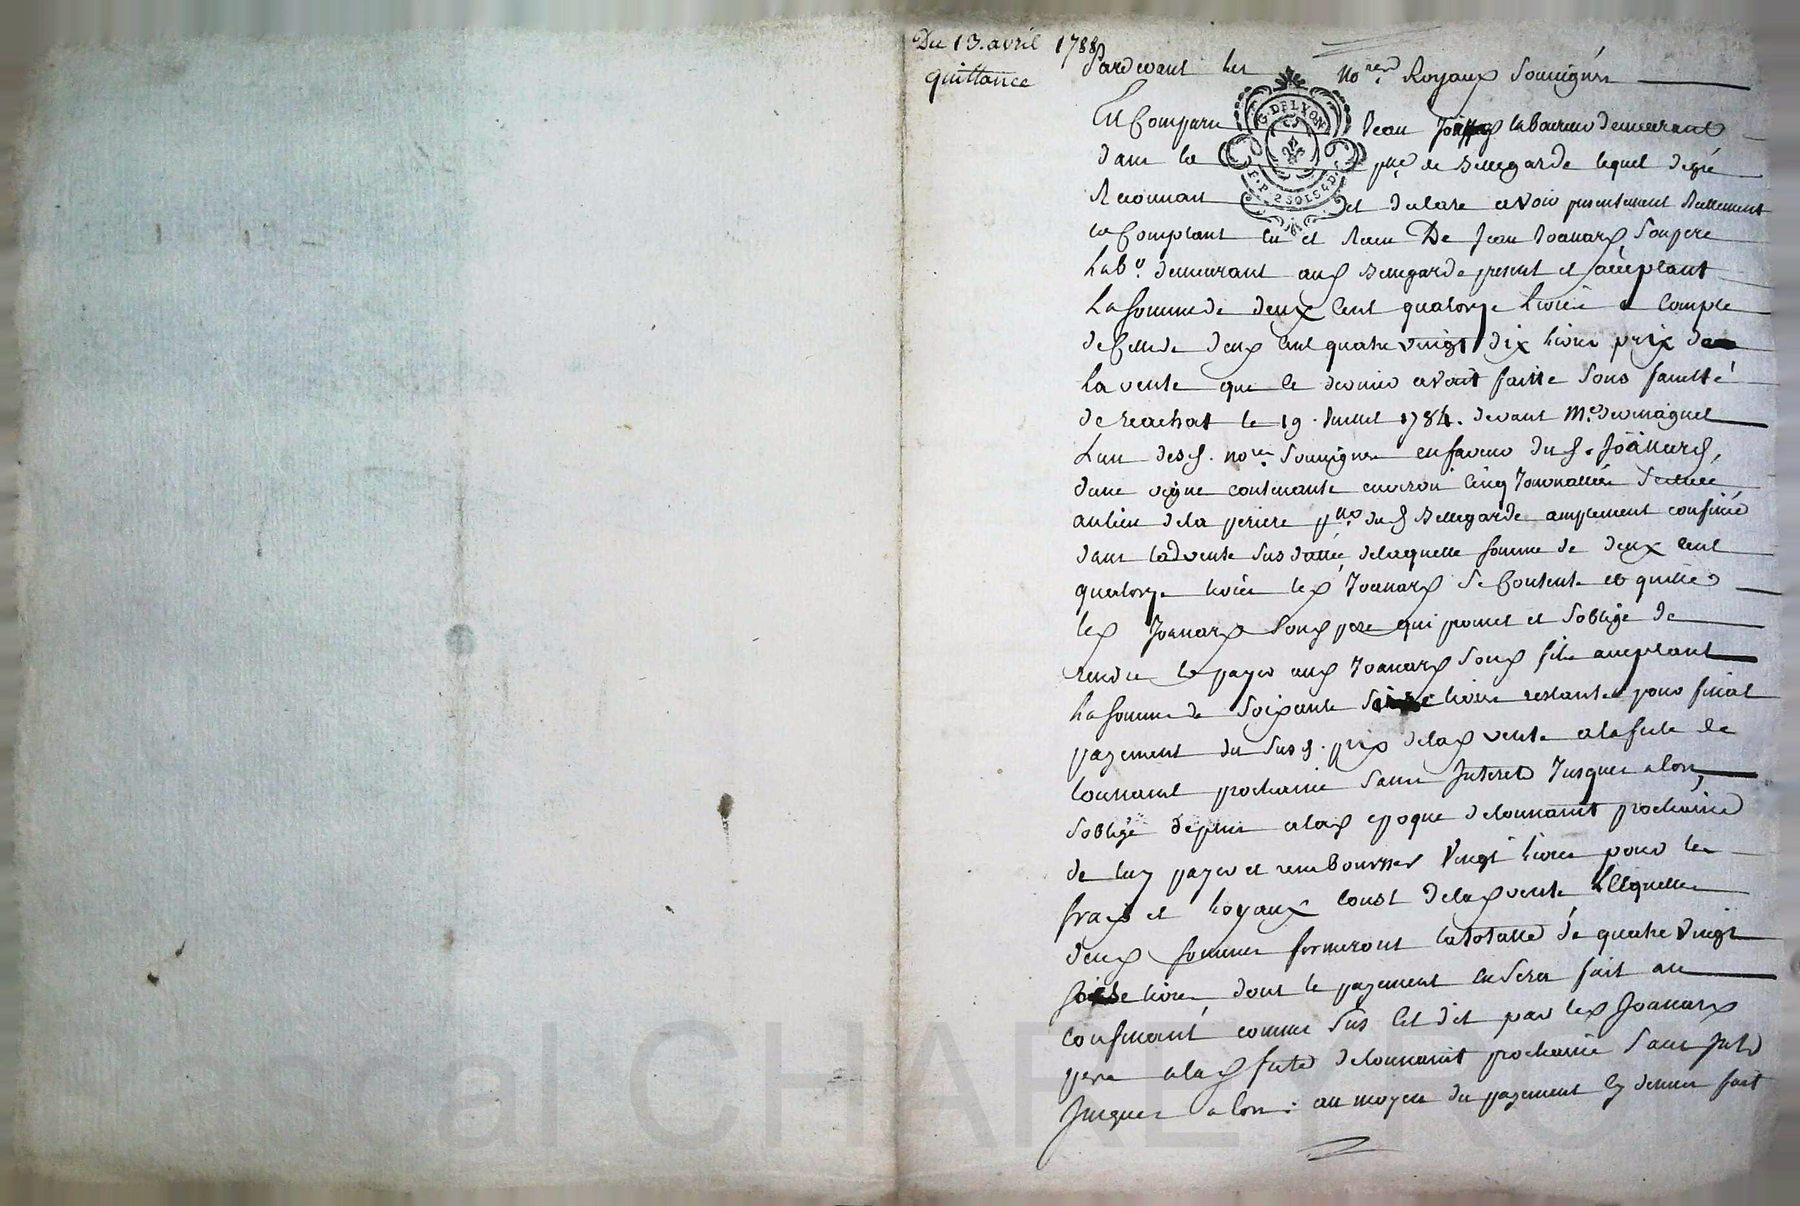 Du 13. avril 1788
quittance
Pardevant les no.res Royaux Soussignés
En Comparu Jean laboureur demeurant
dans la p.sse de Bellegarde lequel de gré
Reconnait et declare avoir presentement Reellement
et Comptant eu et Recu De Jean Joanard Son pere
Lab.r demeurant aud Bellegarde present et acceptant
La Somme de deux Cent quatorze Livres a Compte
de Celle de deux Cent quatre vingt dix livres prix de
La vente que le dernier avoit faitte Sous faculté
de reachat le 19. Juillet 1784. devant M.e
L'un desd. no.res Soussignés en faveur dud. Joanard,
d'une vigne contenante environ Cinq Journallées Scituée
au lieu de la periere p.sse dud Bellegarde amplement confinée
dans lad vente Sus dattée, de laquelle Somme de deux Cent
quatorze livres led Joanard Se Contente et quitte
led Joanard Sond pere qui promet et S'oblige de
rendre et payer aud Joanard Sond fils acceptant
La Somme de Soixante livres restantes pour final
payement du Susd. prix de lad vente a la fete de
toussaint prochaine Sans Interets Jusques alors,
S'oblige depuis a lad epoque de toussaint prochaine
de luy payer et rembourser Vingt livres pour les
frais et loyaux Coust de lad vente Lesquelles
deux Sommes formeront la totalle de quatre Vingt
livres, dont le payement en Sera fait au
comme Sus est dit par led Joanard
pere a lad fete de toussaint prochaine Sans Inte
Jusques alors : au moyen du payement cy dessus fait
G. DE LYON
F. P. 2 SOLS 4 D.
al CHAREYRO